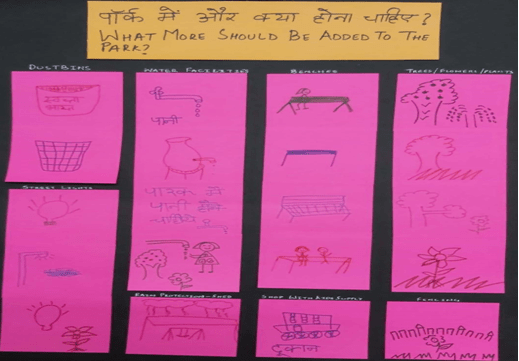 पार्क में और क्या होना चाहिए?
WHAT MORE SHOULD BE ADDED TO THE
PARK?
DUSTBINS
WATER FACILITIES
BENCHES
TREES/FLOWERS/PLANTS
पानी
पारक मे
पानी होने
चाहिये
STREET LIGHTS
RAIN PROTECTION-SHED
SHOP WITH FOOD SUPPLY
FENCING
दुकान